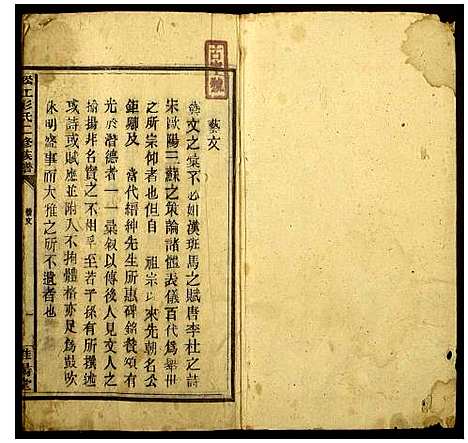 藝文
藝文之彙不必如漢班馬之賦唐李杜之詩
宋歐陽三蘇之策論諸體表儀百代為舉世
之所宗仰者也但自 祖宗以來先朝名公
鉅卿及 當代縉紳先生所惠碑銘贊頌有
光於潛德者一一彙叙以傳後人見文人之
揄揚非名實之不相乎至若子孫有所撰述
或詩或賦應並附入不拘體格亦足為鼓吹
休明盛事而大雅之所不遺者也
彭氏二修族譜
藝文
一
睢陽堂
古